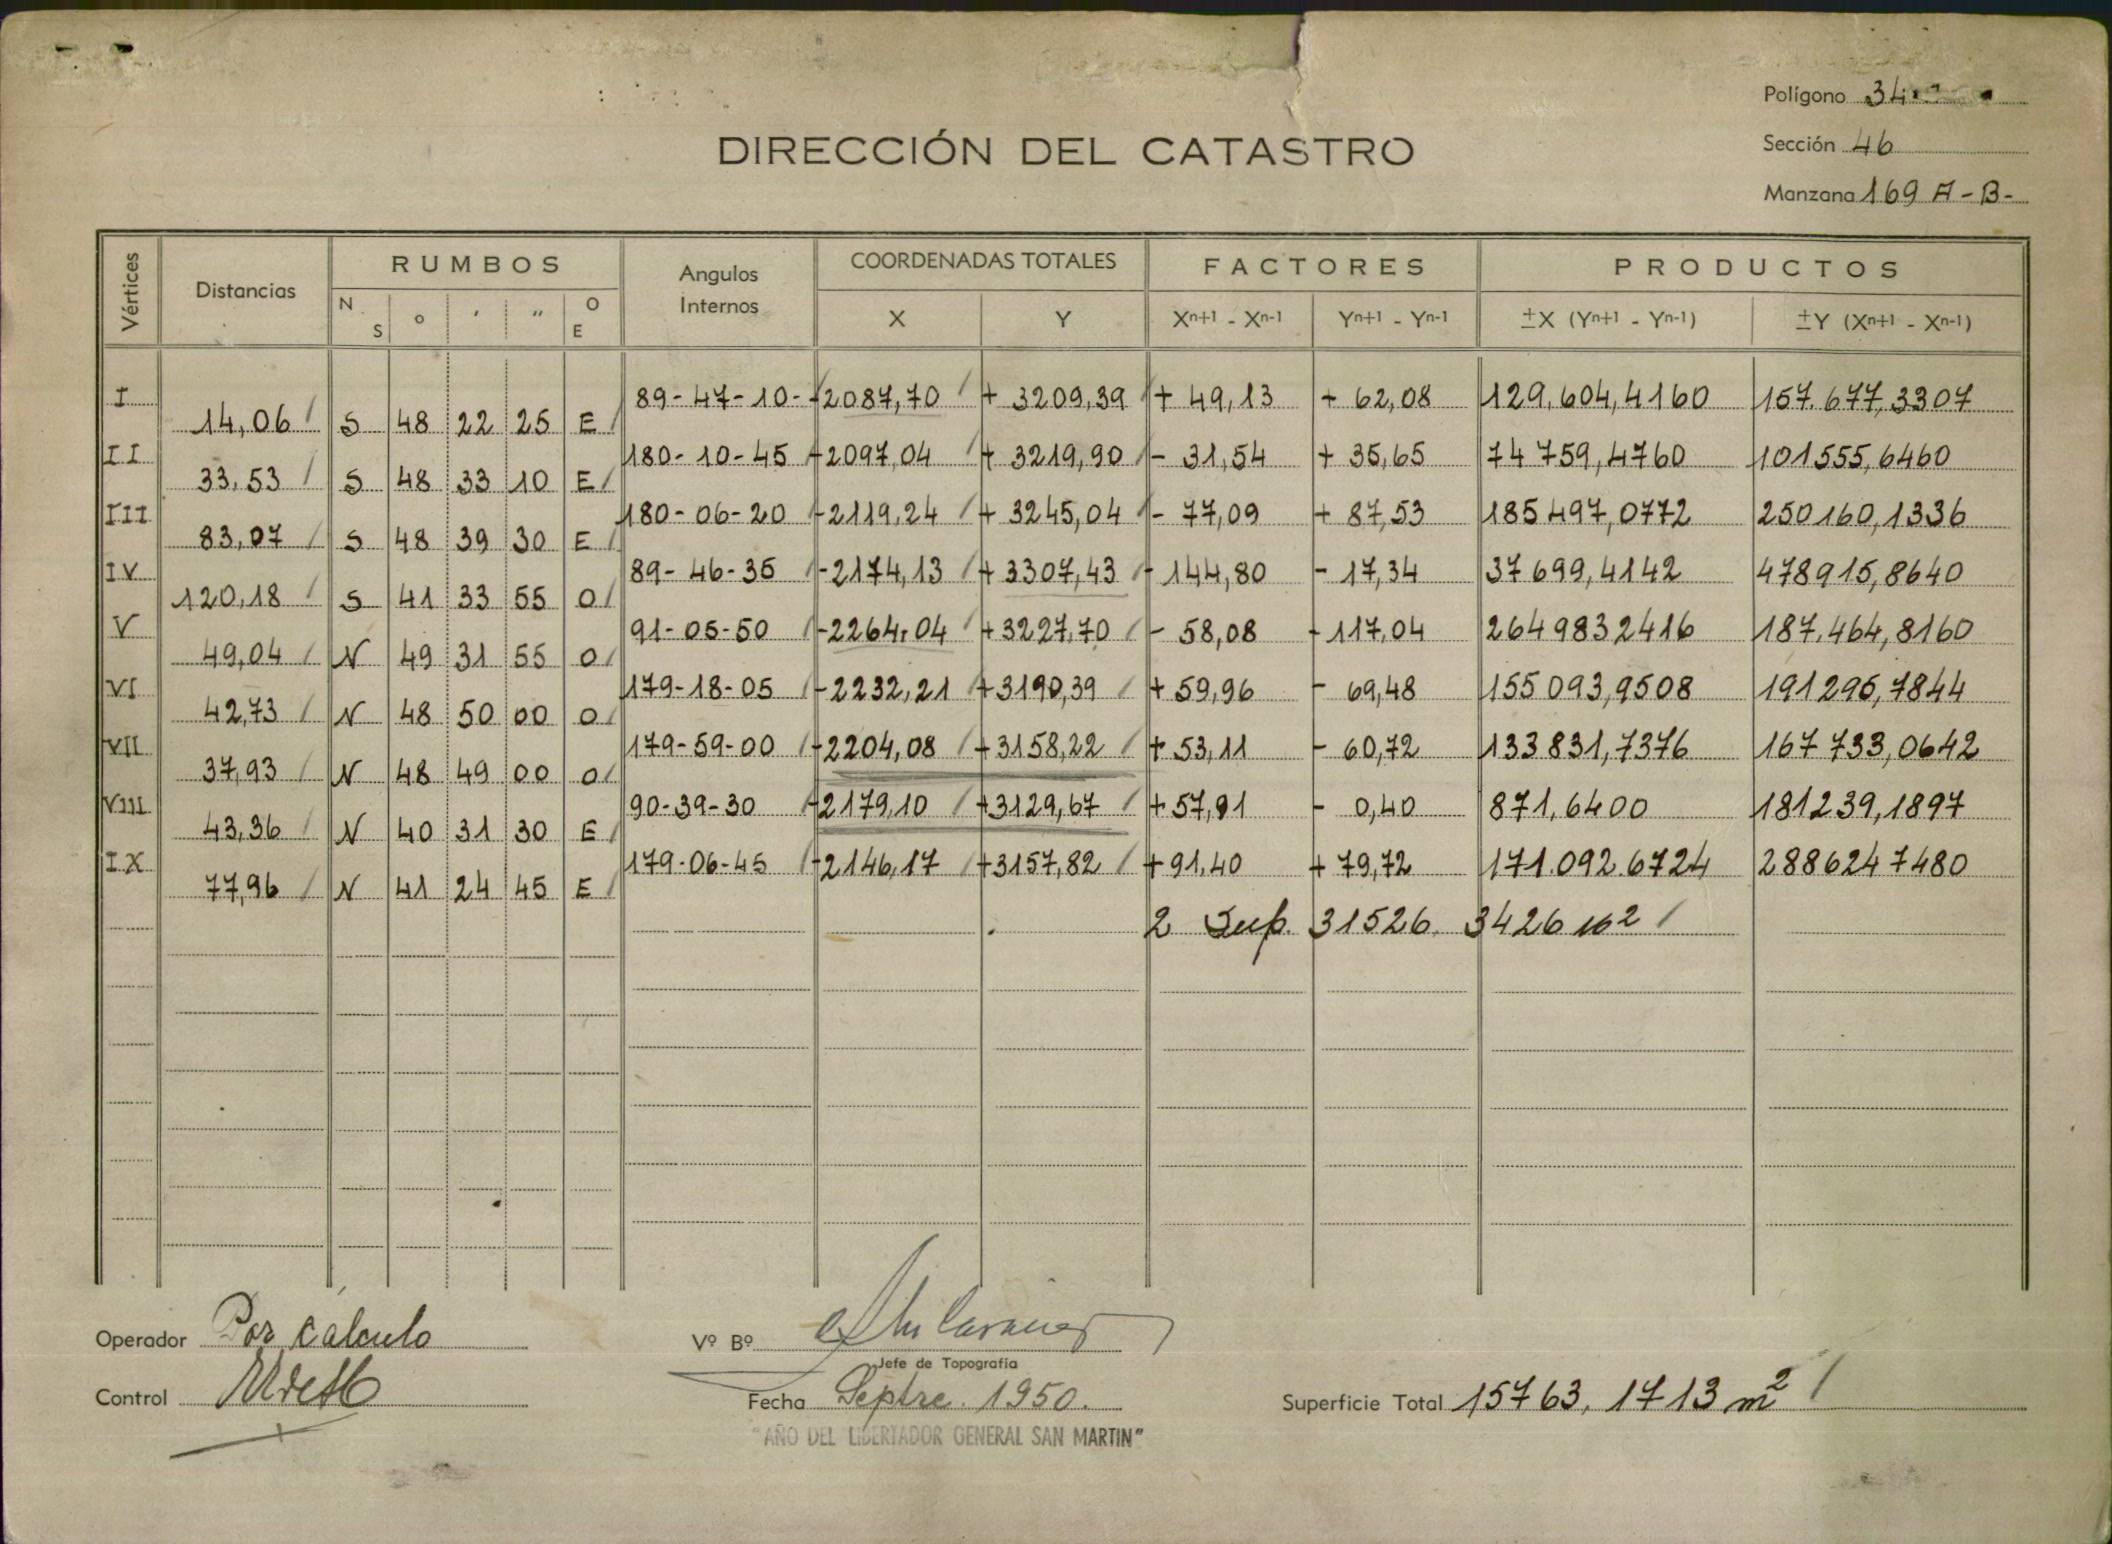 Polígono 34
Sección 46
Manzana 169 A-B-
DIRECCIÓN DEL CATASTRO
Vértices Distancias RUMBOS Angulos Internos COORDENADAS TOTALES FACTORES PRODUCTOS
N S ° ' " O E X Y Xn+1 - Xn-1 Yn+1 - Yn-1 ±X (Yn+1 - Yn-1) ±Y (Xn+1 - Xn-1)
I 89-47-10- -2087,70 + 3209,39 + 49,13 + 62,08 129.604,4160 157.677,3307
14,06 S 48 22 25 E
II 180-10-45 -2097,04 + 3219,90 - 31,54 + 35,65 74 759,4760 101555,6460
33,53 S 48 33 10 E
III 180-06-20 -2119,24 + 3245,04 - 77,09 + 87,53 185 497,0772 250160,1336
83,07 S 48 39 30 E
IV 89-46-35 -2174,13 + 3307,43 - 144,80 - 17,34 37 699,4142 478915,8640
120,18 S 41 33 55 O
V 91-05-50 -2264,04 +3227,70 - 58,08 -117,04 264983 2416 187.464,8160
49,04 N 49 31 55 O
VI 179-18-05 -2232,21 +3190,39 + 59,96 - 69,48 155 093,9508 191295,7844
42,73 N 48 50 00 O
VII 179-59-00 -2204,08 +3158,22 + 53,11 - 60,72 133 831,7376 167 733,0642
37,93 N 48 49 00 O
VIII 90-39-30 -2179,10 +3129,67 +57,91 - 0,40 871,6400 181239,1897
43,36 N 40 31 30 E
IX 179-06-45 -2146,17 +3157,82 +91,40 + 79,72 171.092.6724 288624 7480
77,96 N 41 24 45 E
2 Sup. 31526. 3426 m2
Operador Por cálculo
Vº Bº
Jefe de Topografía
Control
Fecha Septre. 1950.
Superficie Total 15763,1713 m2
"AÑO DEL LIBERTADOR GENERAL SAN MARTIN"